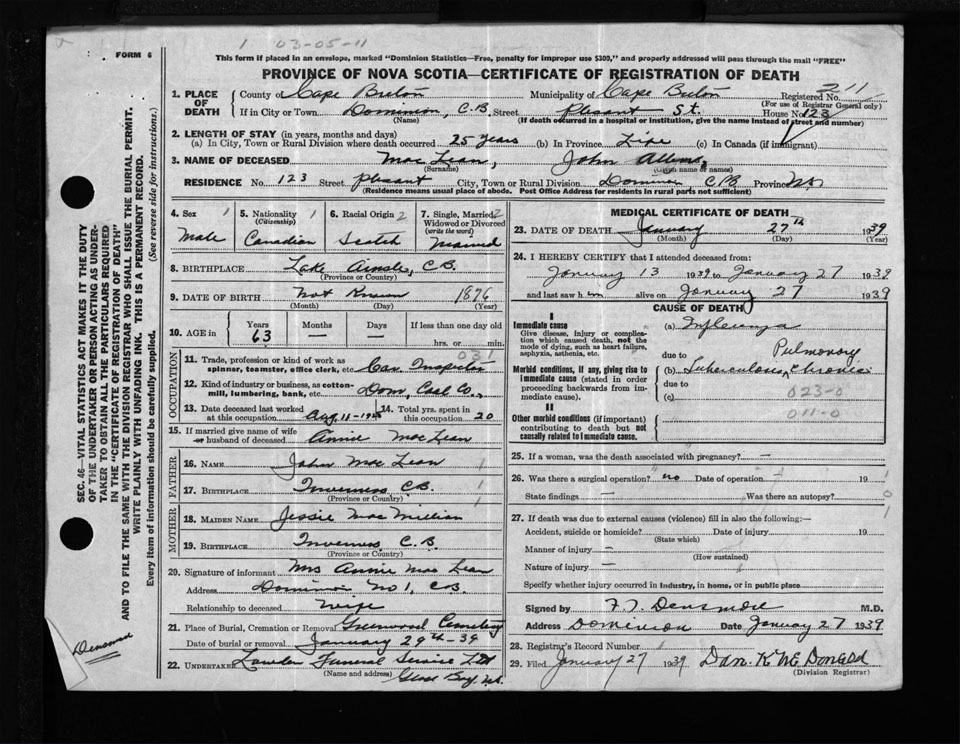 1 03-05-11
FORM 6
This form if placed in an envelope, marked "Dominion Statistics—Free, penalty for improper use $300," and properly addressed will pass through the mail "FREE"
PROVINCE OF NOVA SCOTIA—CERTIFICATE OF REGISTRATION OF DEATH
1. PLACE OF DEATH County of Cape Breton Municipality of Cape Breton Registered No. 211
(For use of Registrar General only)
If in City or Town Dominion, C.B. Street Plesant St. House No. 123
(Name) (If death occurred in a hospital or institution, give the name instead of street and number)
2. LENGTH OF STAY (in years, months and days)
(a) In City, Town or Rural Division where death occurred 25 years (b) In Province Life (c) In Canada (if immigrant)
3. NAME OF DECEASED Mac Lean, John Allens,
(Surname) (Given name or names)
RESIDENCE No. 123 Street Plesant City, Town or Rural Division Dominion, C.B. Province N.S.
(Residence means usual place of abode. Post Office Address for residents in rural parts not sufficient)
SEC. 46—VITAL STATISTICS ACT MAKES IT THE DUTY
OF THE UNDERTAKER OR PERSON ACTING AS UNDER-
TAKER TO OBTAIN ALL THE PARTICULARS REQUIRED
IN THE "CERTIFICATE OF REGISTRATION OF DEATH"
AND TO FILE THE SAME WITH THE DIVISION REGISTRAR WHO SHALL ISSUE THE BURIAL PERMIT.
WRITE PLAINLY WITH UNFADING INK. THIS IS A PERMANENT RECORD.
Every item of information should be carefully supplied. (See reverse side for instructions.)
4. Sex 1 5. Nationality 1 (Citizenship) 6. Racial Origin 2 7. Single, Married 2 Widowed or Divorced (write the word)
Male Canadian Scotch Married
8. BIRTHPLACE Lake Ainslie, C.B.
(Province or Country)
9. DATE OF BIRTH Not Known 1876
(Month) (Day) (Year)
10. AGE in Years Months Days If less than one day old
63 — — hrs. or min.
OCCUPATION
11. Trade, profession or kind of work as spinner, teamster, office clerk, etc. Car Inspector 031
12. Kind of industry or business, as cotton-mill, lumbering, bank, etc. Dom. Coal Co.,
13. Date deceased last worked at this occupation Aug. 11-19 14. Total yrs. spent in this occupation 20
15. If married give name of wife or husband of deceased Annie Mac Lean
FATHER
16. NAME John Mac Lean 1
17. BIRTHPLACE Inverness C.B. 1
(Province or Country)
MOTHER
18. MAIDEN NAME Jessie Mac Millian
19. BIRTHPLACE Inverness, C.B.
(Province or Country)
20. Signature of informant Mrs Annie Mac Lean
Address Dominion No 1, C.B.
Relationship to deceased wife
21. Place of Burial, Cremation or Removal Greenwood Cemetery
Date of burial or removal January 29th-39
22. UNDERTAKER Funeral Service Ltd
(Name and address) Glace Bay N.S.
MEDICAL CERTIFICATE OF DEATH
23. DATE OF DEATH January 27th 1939
(Month) (Day) (Year)
24. I HEREBY CERTIFY that I attended deceased from:
January 13 1939 to January 27 1939
and last saw him alive on January 27 1939
CAUSE OF DEATH
I
Immediate cause (a) Influenza
Give disease, injury or complication which caused death, not the mode of dying, such as heart failure, asphyxia, asthenia, etc.
due to Pulmonary
Morbid conditions, if any, giving rise to immediate cause (stated in order proceeding backwards from immediate cause). (b) Tuberculosis, Chronic
due to
(c) 023-0
011-0
II
Other morbid conditions (if important) contributing to death but not causally related to immediate cause.
25. If a woman, was the death associated with pregnancy? —
26. Was there a surgical operation? no Date of operation 19 1
State findings — Was there an autopsy? 0
27. If death was due to external causes (violence) fill in also the following:—
Accident, suicide or homicide? Date of injury 19
(State which)
Manner of injury —
(How sustained)
Nature of injury —
Specify whether injury occurred in industry, in home, or in public place
Signed by F. T. Densmore M.D.
Address Dominion Date January 27 1939
28. Registrar's Record Number
29. Filed January 27 1939 Dan. K McDonald
(Division Registrar)